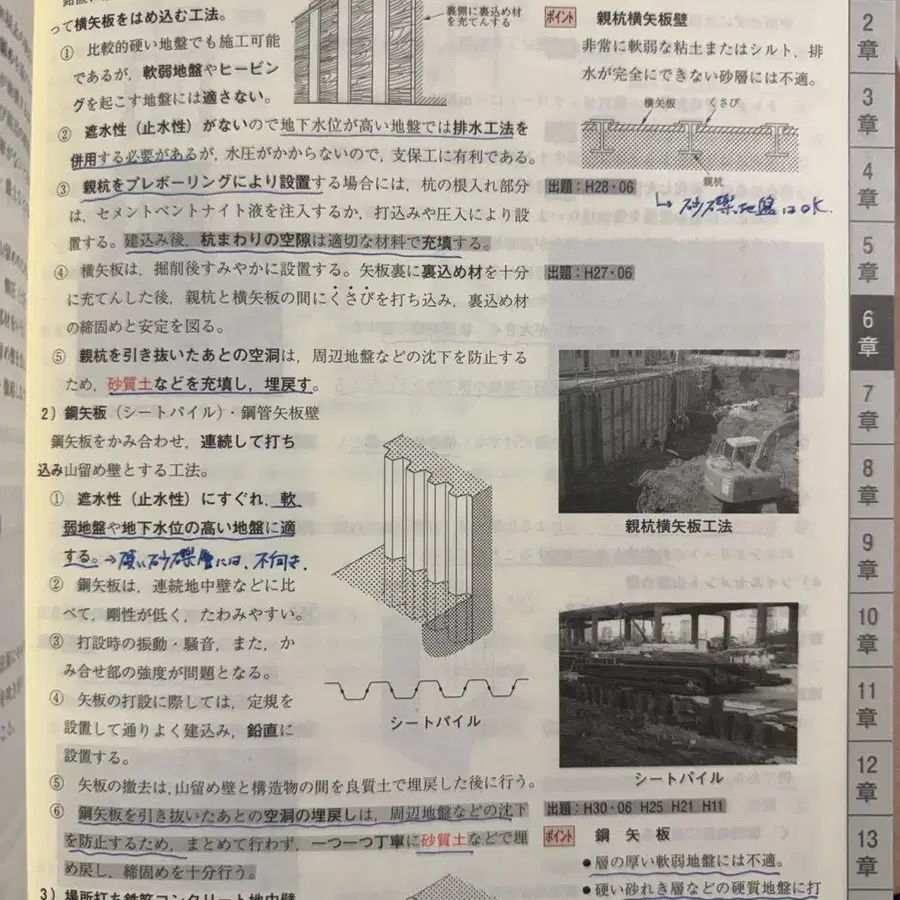 って横矢板をはめ込む工法。
① 比較的硬い地盤でも施工可能
であるが，軟弱地盤やヒービン
グを起こす地盤には適さない。
② 遮水性（止水性）がないので地下水位が高い地盤では排水工法を
併用する必要があるが，水圧がかからないので，支保工に有利である。
③ 親杭をプレボーリングにより設置する場合には，杭の根入れ部分
は，セメントベントナイト液を注入するか，打込みや圧入により設
置する。建込み後，杭まわりの空隙は適切な材料で充填する。
④ 横矢板は，掘削後すみやかに設置する。矢板裏に裏込め材を十分
に充てんした後，親杭と横矢板の間にくさびを打ち込み，裏込め材
の締固めと安定を図る。
⑤ 親杭を引き抜いたあとの空洞は，周辺地盤などの沈下を防止する
ため，砂質土などを充填し，埋戻す。
2）鋼矢板（シートパイル）・鋼管矢板壁
鋼矢板をかみ合わせ，連続して打ち
込み山留め壁とする工法。
① 遮水性（止水性）にすぐれ，軟
弱地盤や地下水位の高い地盤に適
する。→厚い砂礫層には、不向き.
② 鋼矢板は，連続地中壁などに比
べて，剛性が低く，たわみやすい。
③ 打設時の振動・騒音，また，か
み合せ部の強度が問題となる。
④ 矢板の打設に際しては，定規を
設置して通りよく建込み，鉛直に
設置する。
⑤ 矢板の撤去は，山留め壁と構造物の間を良質土で埋戻した後に行う。
⑥ 鋼矢板を引き抜いたあとの空洞の埋戻しは，周辺地盤などの沈下
を防止するため，まとめて行わず，一つ一つ丁寧に砂質土などで埋
め戻し，締固めを十分行う。
3）場所打ち鉄筋コンクリート地中壁
裏側に裏込め材
を充てんする
シートパイル
ポイント 親杭横矢板壁
非常に軟弱な粘土またはシルト，排
水が完全にできない砂層には不適。
横矢板 くさび
親杭
出題：H28・06
↳ 砂礫地盤はOK.
出題：H27・06
親杭横矢板工法
シートパイル
出題：H30・06 H25 H21 H11
ポイント 鋼矢板
●層の厚い軟弱地盤には不適。
●硬い砂れき層などの硬質地盤に打
2章
3章
4章
5章
6章
7章
8章
9章
10章
11章
12章
13章